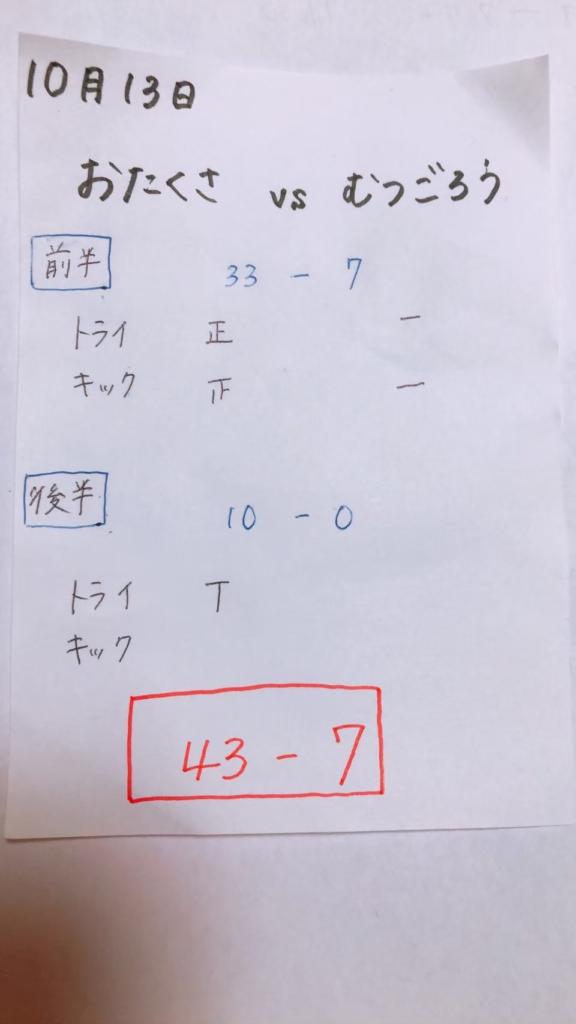 10月13日
おたくさ vs むつごろう
前半 33 - 7
トライ 正 一
キック 下 一
後半 10 - 0
トライ T
キック
43 - 7